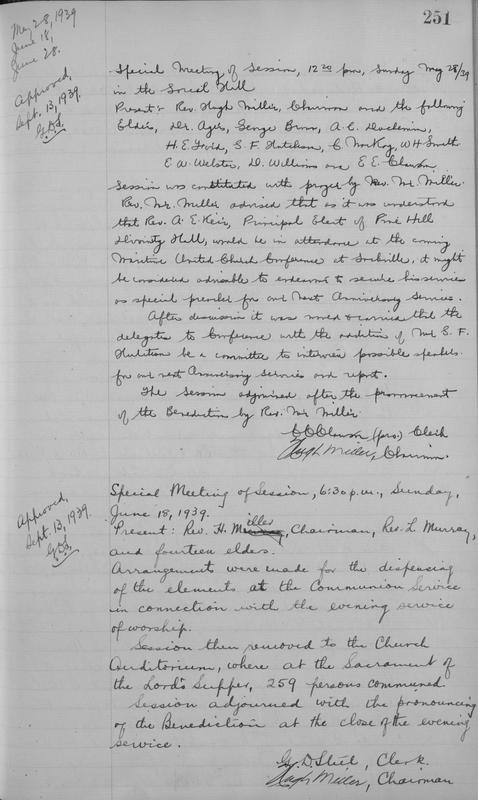 251
May 28, 1939
June 18,
June 28.
Approved,
Sept. 13, 1939.
G.D.S.
Special Meeting of Session, 12 20 p.m., Sunday May 28/39
in the Social Hall
Present:- Rev. Hugh Miller, Chairman and the following
Elders, Dr. Ager, George Brown, A. C.
H. E. Ford, S. F. Hutchison, C. MacKay, W H Smith
E W. Webster, D. Williams and E E. Clawson
Session was constituted with prayer by Rev. Mr. Miller.
Rev. Mr. Miller advised that as it was understood
that Rev. A. E. Keir, Principal Elect of Pine Hill
Divinity Hall, would be in attendance at the coming
Maritime United Church Conference at Sackville, it might
be considered advisable to endeavor to secure his services
as special preacher for our next Anniversary Services.
After discussion it was moved & carried that the
delegates to Conference with the addition of Mr S. F.
Hutchison be a committee to interview possible speakers
for our next Anniversary Services and report.
The Session adjourned after the pronouncement
of the Benediction by Rev. Mr Miller
E E Clawson (pro.) Clerk
Hugh Miller, Chairman.
Approved,
Sept. 13, 1939.
G.D.S.
Special Meeting of Session, 6:30 p.m., Sunday,
June 18, 1939.
Present: Rev. H. Miller, Chairman, Rev. L. Murray,
and fourteen elders.
Arrangements were made for the dispensing
of the elements at the Communion Service
in connection with the evening service
of worship.
Session then removed to the Church
Auditorium, where at the Sacrament of
the Lord's Supper, 259 persons communed.
Session adjourned with the pronouncing
of the Benediction at the close of the evening
service.
G. D. Steel, Clerk.
Hugh Miller, Chairman